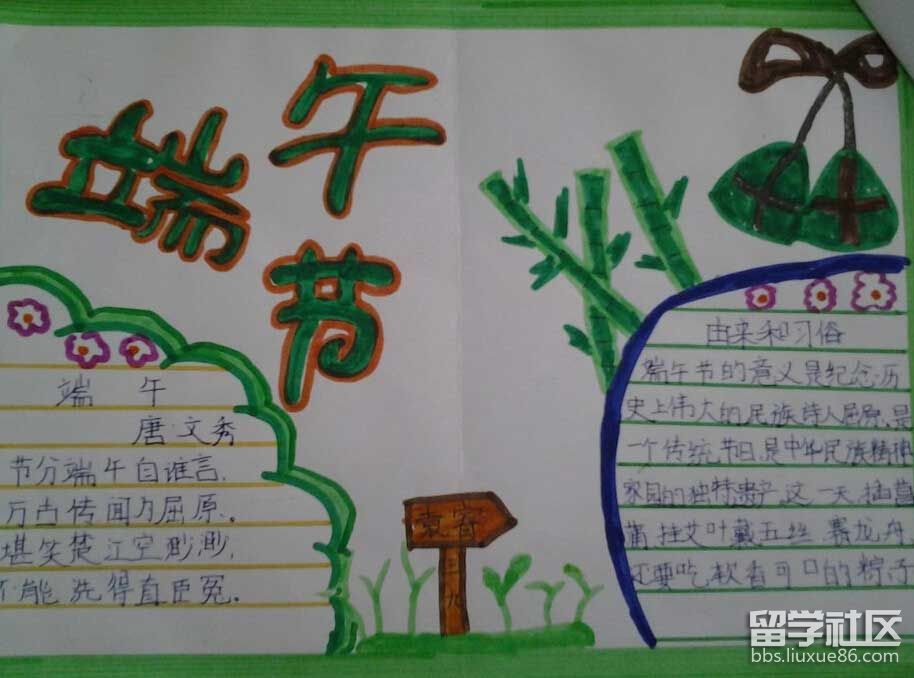 端午节
端 午
唐 文秀
节分端午自谁言,
万古传闻为屈原。
堪笑楚江空渺渺,
不能洗得直臣冤。
袁容
三
九
由来和习俗
端午节的意义是纪念历
史上伟大的民族诗人屈原,是
一个传统节日,是中华民族精神
家园的独特遗产.这一天,插菖
蒲,挂艾叶戴五丝,赛龙舟,
还要吃软香可口的粽子
留学社区
bbs.liuxue86.com